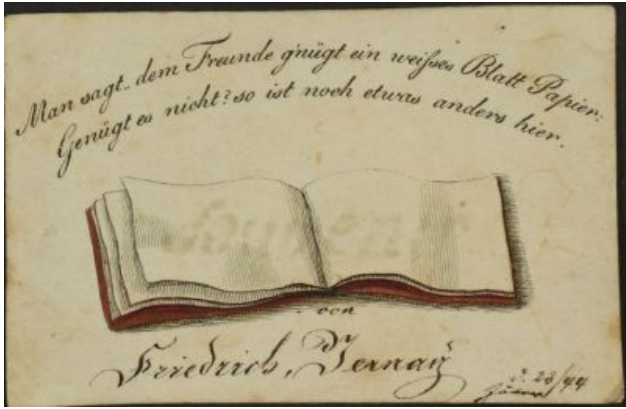 Man sagt, dem Freunde g'nügt ein weiſses Blatt Papier:
Genügt es nicht? so ist noch etwas anders hier.
von
Friedrich, Jernaÿ
d. 23/44